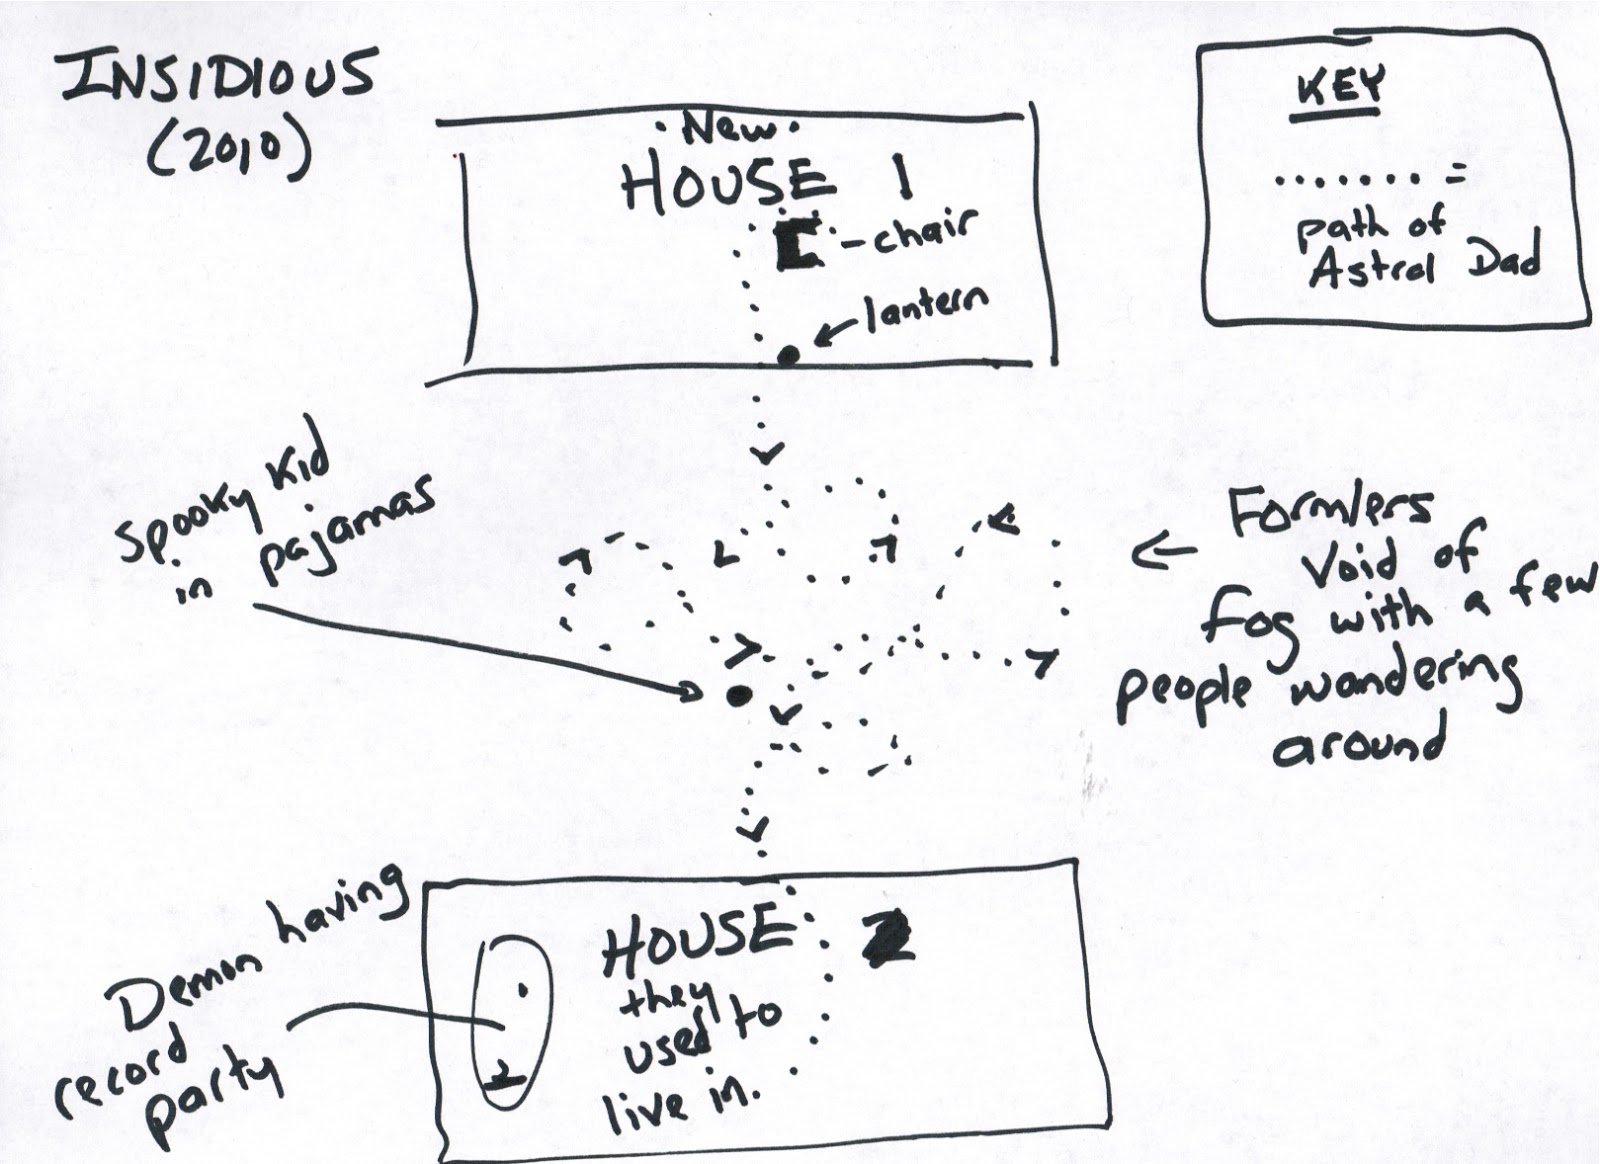 INSIDIOUS
(2010)
• New •
HOUSE 1
- chair
lantern
KEY
....... =
path of
Astral Dad
Spooky Kid
in pajamas
Formlers
Void of
fog with a few
people wandering
around
Demon having
record
party
HOUSE 2
they
used to
live in.